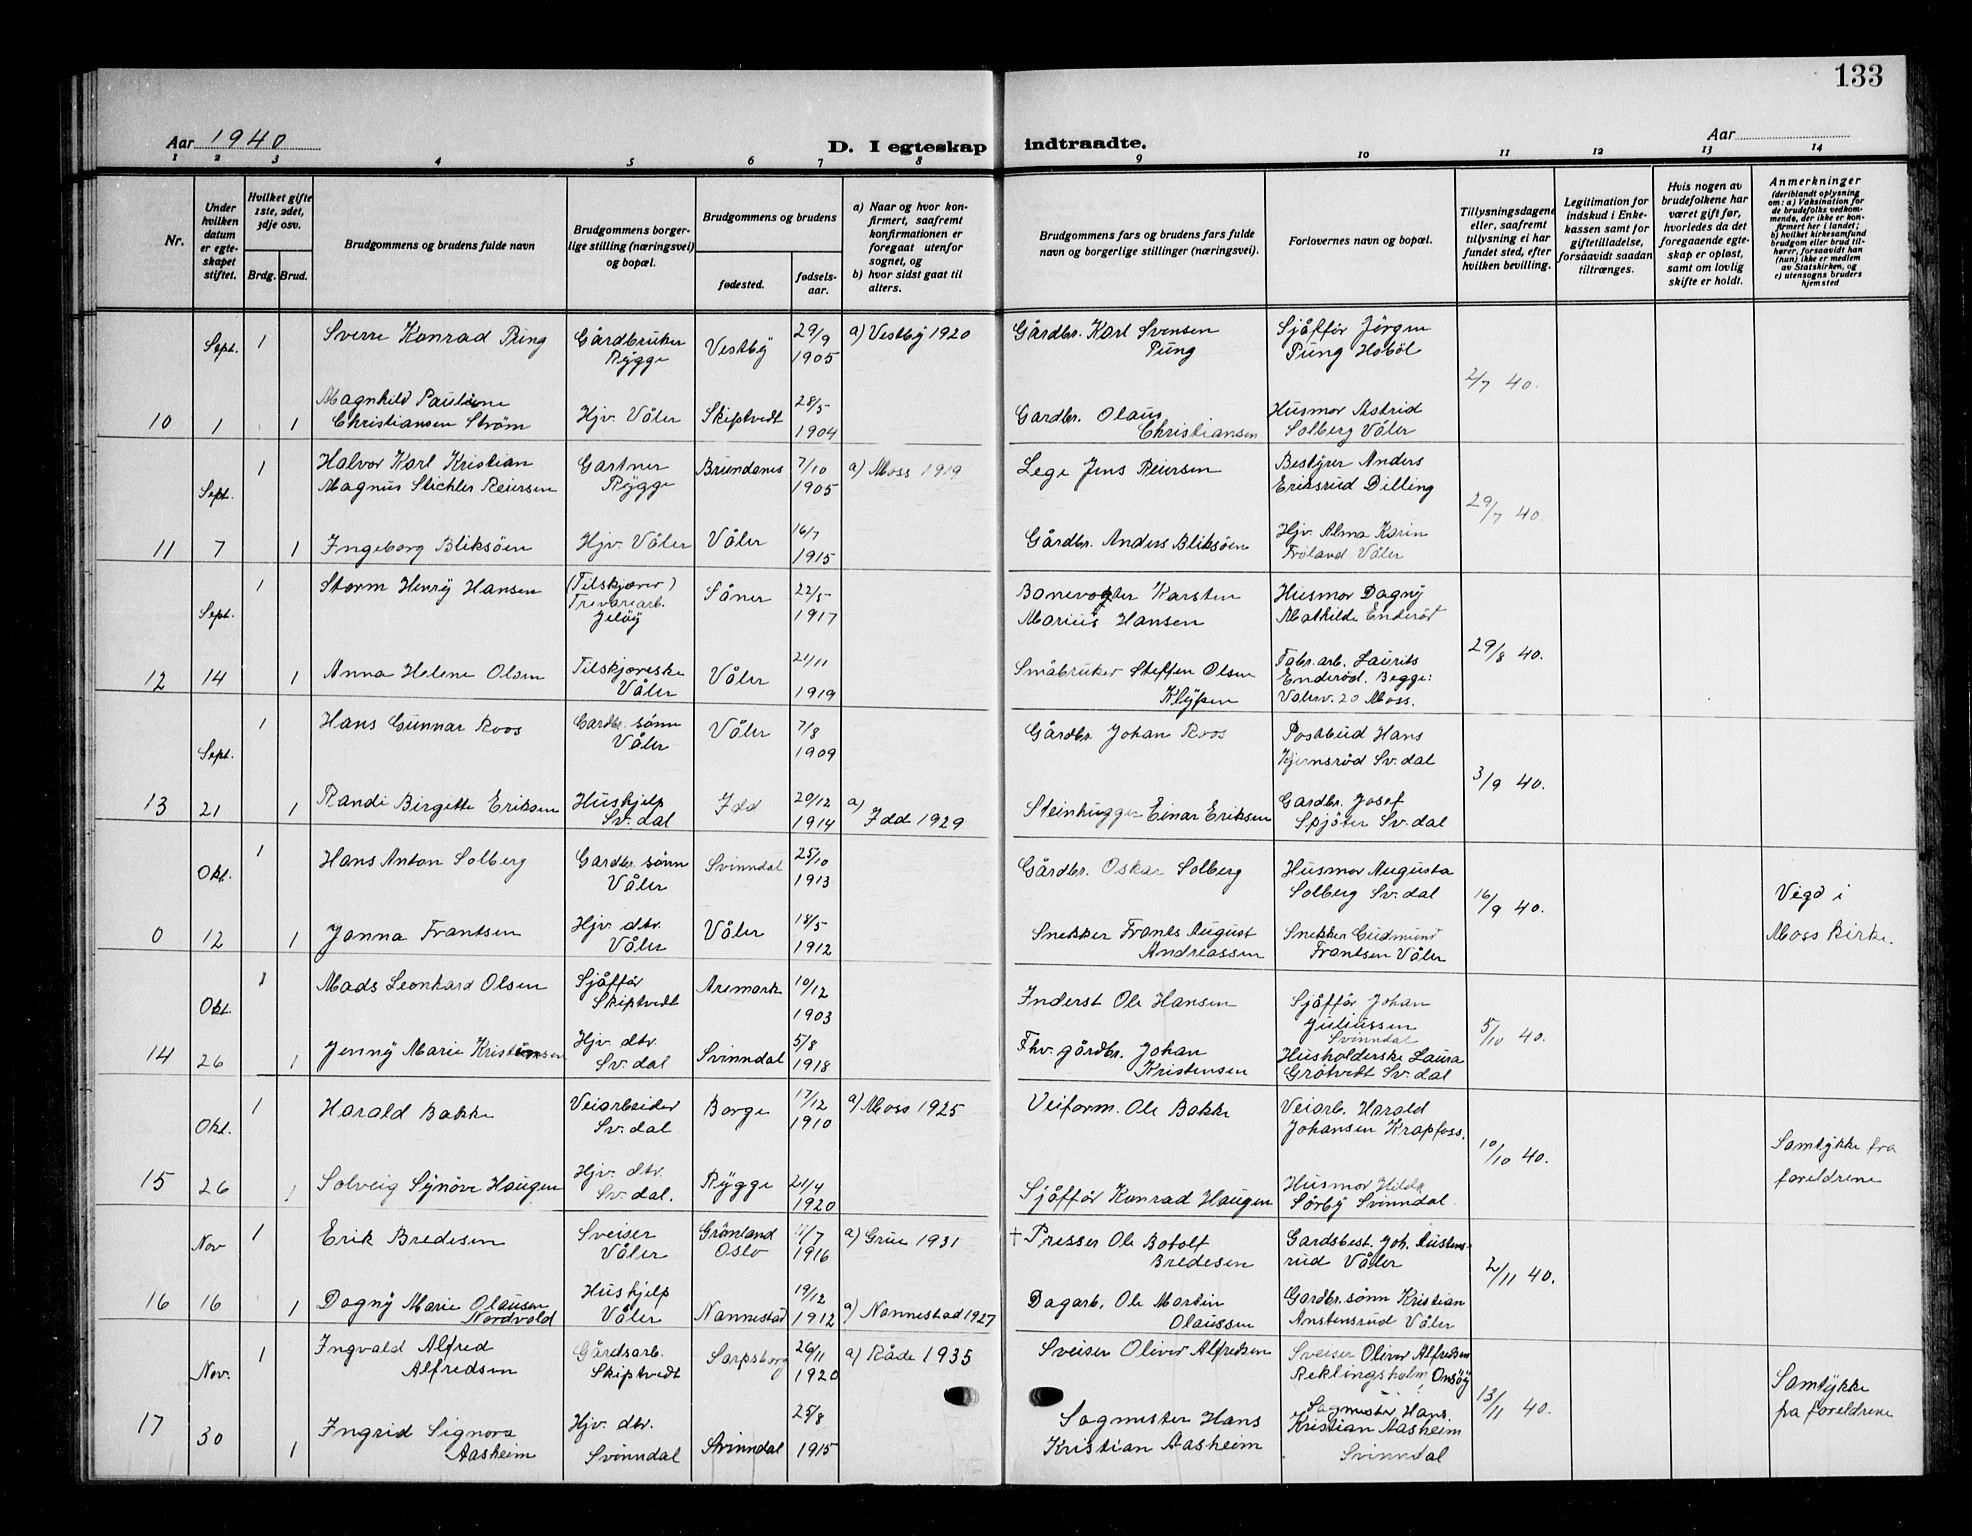 133
Aar 1940
D. I egteskap indtraadte.
Aar
1 2 3 4 5 6 7 8 9 10 11 12 13 14
Nr.
Under hvilken datum er egteskapet stiftet.
Hvilket gifte 1ste, 2det, 3dje osv.
Brdg. Brud.
Brudgommens og brudens fulde navn
Brudgommens borgerlige stilling (næringsvei) og bopæl.
Brudgommens og brudens
fødested. fødselsaar.
a) Naar og hvor konfirmert, saafremt konfirmationen er foregaat utenfor sognet, og
b) hvor sidst gaat til alters.
Brudgommens fars og brudens fars fulde navn og borgerlige stillinger (næringsvei).
Forlovernes navn og bopæl.
Tillysningsdagene eller, saafremt tillysning ei har fundet sted, efter hvilken bevilling.
Legitimation for indskud i Enkekassen samt for giftetilladelse, forsaavidt saadan tiltrænges.
Hvis nogen av brudefolkene har været gift før, hvorledes da det foregaaende egteskap er opløst, samt om lovlig skifte er holdt.
Anmerkninger
(deriblandt oplysning om: a) Vaksination for de brudefolks vedkommende, der ikke er konfirmert her i landet; b) hvilket kirkesamfund brudgom eller brud tilhører, forsaavidt han (hun) ikke er medlem av Statskirken, og c) utensogns bruders hjemsted
Sept. 1 Sverre Konrad Pung Gårdbruker Rygge Vestby 29/9 1905 a) Vestby 1920 Gårdbr. Karl Svensen Pung Sjåffør Jørgen Pung Hobøl
2/7 40.
10 1 1 Magnhild Pauline Christiansen Strøm Hjv. Våler Skiptvedt 28/5 1904 Gardbr. Olaus Christiansen Husmor Astrid Solberg Våler
Sept. 1 Halvor Karl Kristian Magnus Stichler Reiersen Gartner Rygge 7/10 1905 a) Moss 1919 Lege Jens Reiersen Bestyrer Anders Eriksrud Dilling
29/7 40.
11 7 1 Ingeborg Bliksøen Hjv. Våler Våler 16/7 1915 Gårdbr. Anders Bliksøen Hjv. Alma Karin Frøland Våler
Sept. 1 Storm Henry Hansen (Tilskjærer) Trevarearb. Jeløy Såner 22/5 1917 Banevogter Karsten Marius Hansen Husmor Dagny Mathilde Enderød
29/8 40.
12 14 1 Anna Helene Olsen Tilskjæreske Våler Våler 21/11 1919 Småbruker Steffen Olsen Klypen Fabr.arb. Laurits Enderød. Begge: Vålerv. 20 Moss.
Sept. 1 Hans Gunnar Roos Gardbr. sønn Våler Våler 7/8 1909 Gårdbr. Johan Roos Postbud Hans Kjernsrød Sv.dal
3/9 40.
13 21 1 Randi Birgitte Eriksen Hushjelp Sv.dal Idd 20/12 1914 a) Idd 1929 Steinhugger Einar Eriksen Gardbr. Josef Spjøter Sv.dal
Okt. 1 Hans Anton Solberg Gardbr. sønn Våler Svinndal 25/10 1913 Gårdbr. Oskar Solberg Husmor Augusta Solberg Sv.dal
16/9 40. Vigd i Moss kirke.
0 12 1 Janna Frantsen Hjv. dtr. Våler Våler 18/5 1912 Snekker Frants August Andreassen Snekker Gudmund Frantsen Våler
Okt. 1 Mads Leonhard Olsen Sjåffør Skiptvedt Aremark 10/12 1903 Inderst Ole Hansen Sjåffør Johan Juliussen Svinndal
5/10 40.
14 26 1 Jenny Marie Kristensen Hjv. dtr. Sv.dal Svinndal 5/8 1918 Fhv. gårdbr. Johan Kristensen Husholderske Laura Grøtvedt Sv.dal
Okt. 1 Harald Bakke Veiarbeider Sv.dal Borge 17/12 1910 a) Moss 1925 Veiform. Ole Bakke Veiarb. Harald Johansen Krapfoss.
10/10 40. Samtykke fra foreldrene
15 26 1 Solveig Synøve Haugen Hjv. dtr. Sv.dal. Rygge 21/4 1920 Sjåffør Konrad Haugen Husmor Hilda Sørby Svinndal
Nov 1 Erik Bredesen Sveiser Våler Grønland Oslo 11/7 1916 a) Grue 1931 † Presser Ole Botolf Bredesen Gardsbest. Joh. rud Våler
2/11 40.
16 16 1 Dagny Marie Olausen Nordvold Hushjelp Våler Nannestad 19/12 1912 a) Nannestad 1927 Dagarb. Ole Martin Olaussen Gardbr.sønn Kristian Anstensrud Våler
Nov. 1 Ingvald Alfred Alfredsen Gårdsarb. Skiptvedt Sarpsborg 26/11 1920 a) Råde 1935 Sveiser Oliver Alfredsen Sveiser Oliver Alfredsen Reklingsholm, Onsøy
13/11 40. Samtykke fra foreldrene
17 30 1 Ingrid Signora Aasheim Hjv. dtr. Svinndal Svinndal 25/8 1915 Sagmester Hans Kristian Aasheim Sagmester Hans Kristian Aasheim Svinndal